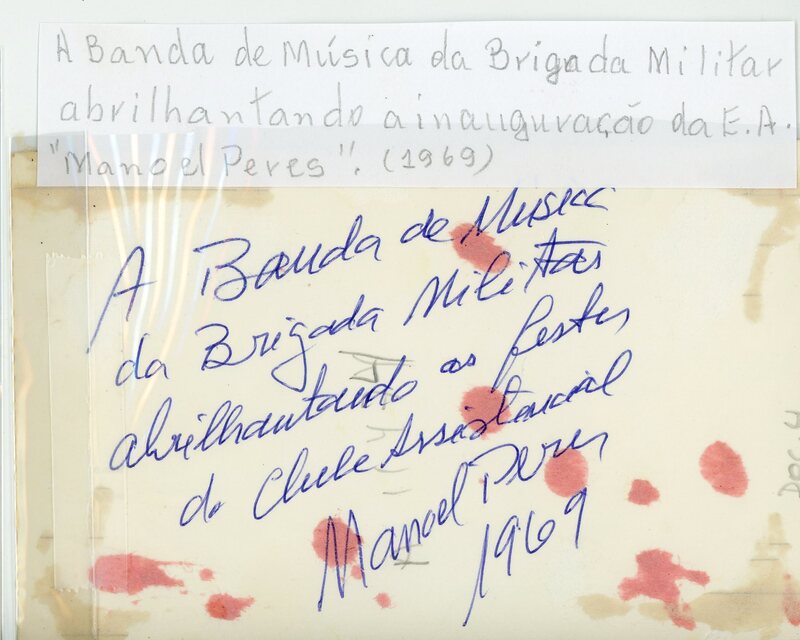 A Banda de Música da Brigada Militar
abrilhantando a inauguração da E.A.
"Manoel Peres". (1969)
A Banda de Musica
da Brigada Militar
abrilhantando as festas
do Clube Assistencial
Manoel Peres
1969
DOC. 4